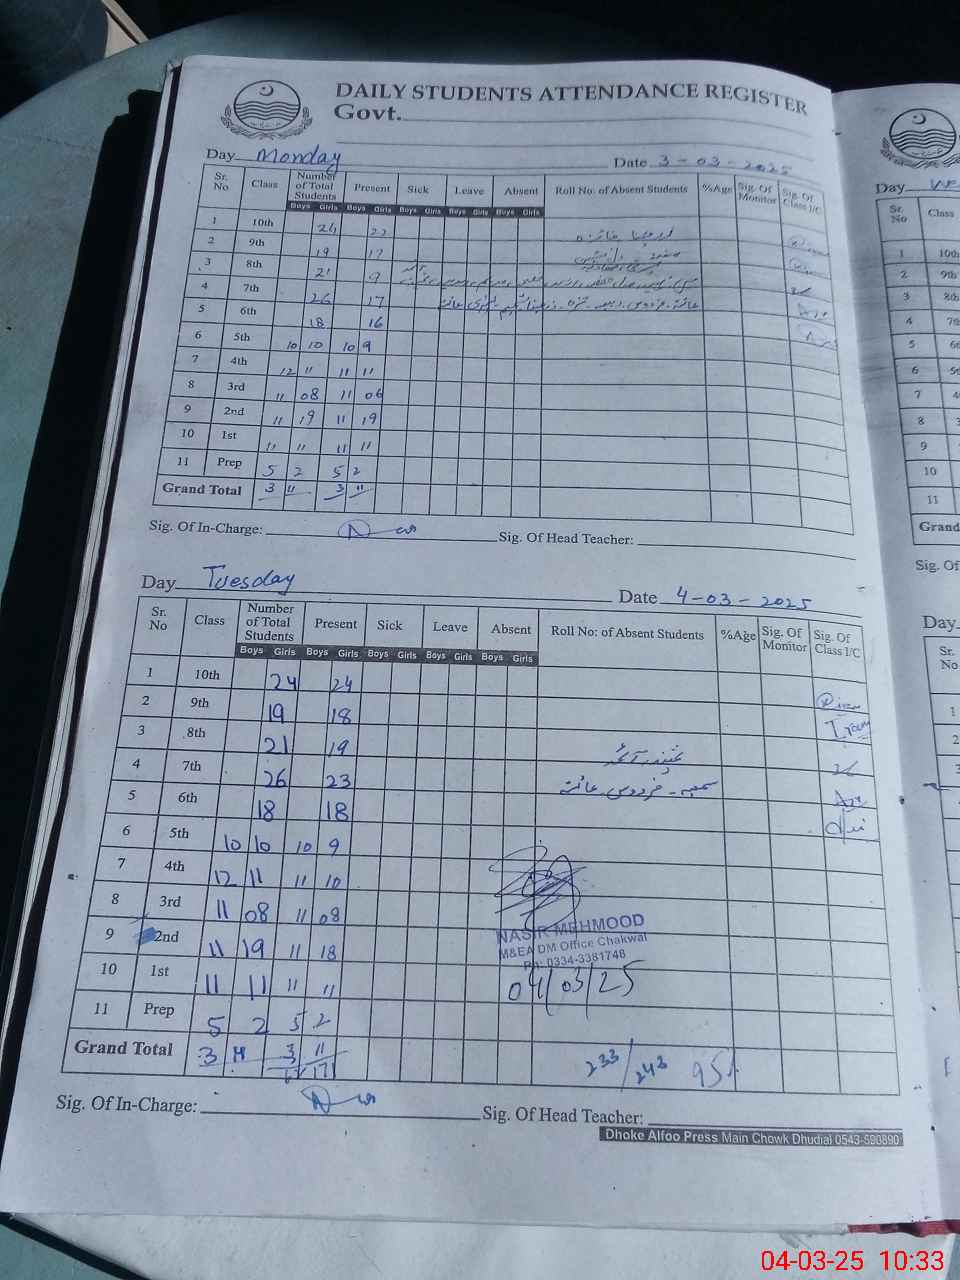 DAILY STUDENTS ATTENDANCE REGISTER
Govt.
Day Monday Date 3-03-2025
Sr. No Class Number of Total Students Present Sick Leave Absent Roll No: of Absent Students %Age Sig. Of Monitor Sig. Of Class I/C
Boys Girls Boys Girls Boys Girls Boys Girls Boys Girls
1 10th 24 22
2 9th 19 17
3 8th 21 9
4 7th 26 17
5 6th 18 16
6 5th 10 10 10 9
7 4th 12 11 11 11
8 3rd 11 08 11 06
9 2nd 11 19 11 19
10 1st 11 11 11 11
11 Prep 5 2 5 2
Grand Total 3 11 3 11
Sig. Of In-Charge: Sig. Of Head Teacher:
Day Tuesday Date 4-03-2025
Sr. No Class Number of Total Students Present Sick Leave Absent Roll No: of Absent Students %Age Sig. Of Monitor Sig. Of Class I/C
Boys Girls Boys Girls Boys Girls Boys Girls Boys Girls
1 10th 24 24
2 9th 19 18
3 8th 21 19
4 7th 26 23
5 6th 18 18
6 5th 10 10 10 9
7 4th 12 11 11 10
8 3rd 11 08 11 08
9 2nd 11 19 11 18
10 1st 11 11 11 11
11 Prep 5 2 5 2
NASIR MEHMOOD
M&EA DM Office Chakwal
Ph: 0334-3381748
04/03/25
Grand Total 3 3 11
233/243 95%
Sig. Of In-Charge: Sig. Of Head Teacher:
Dhoke Alfoo Press Main Chowk Dhudial 0543-590890
Day
Sr. No Class
1 10th
2 9th
3 8th
4 7th
5
6
7
8
9
10
11
Grand
Sig. Of
Day
Sr. No
1
2
3
04-03-25 10:33